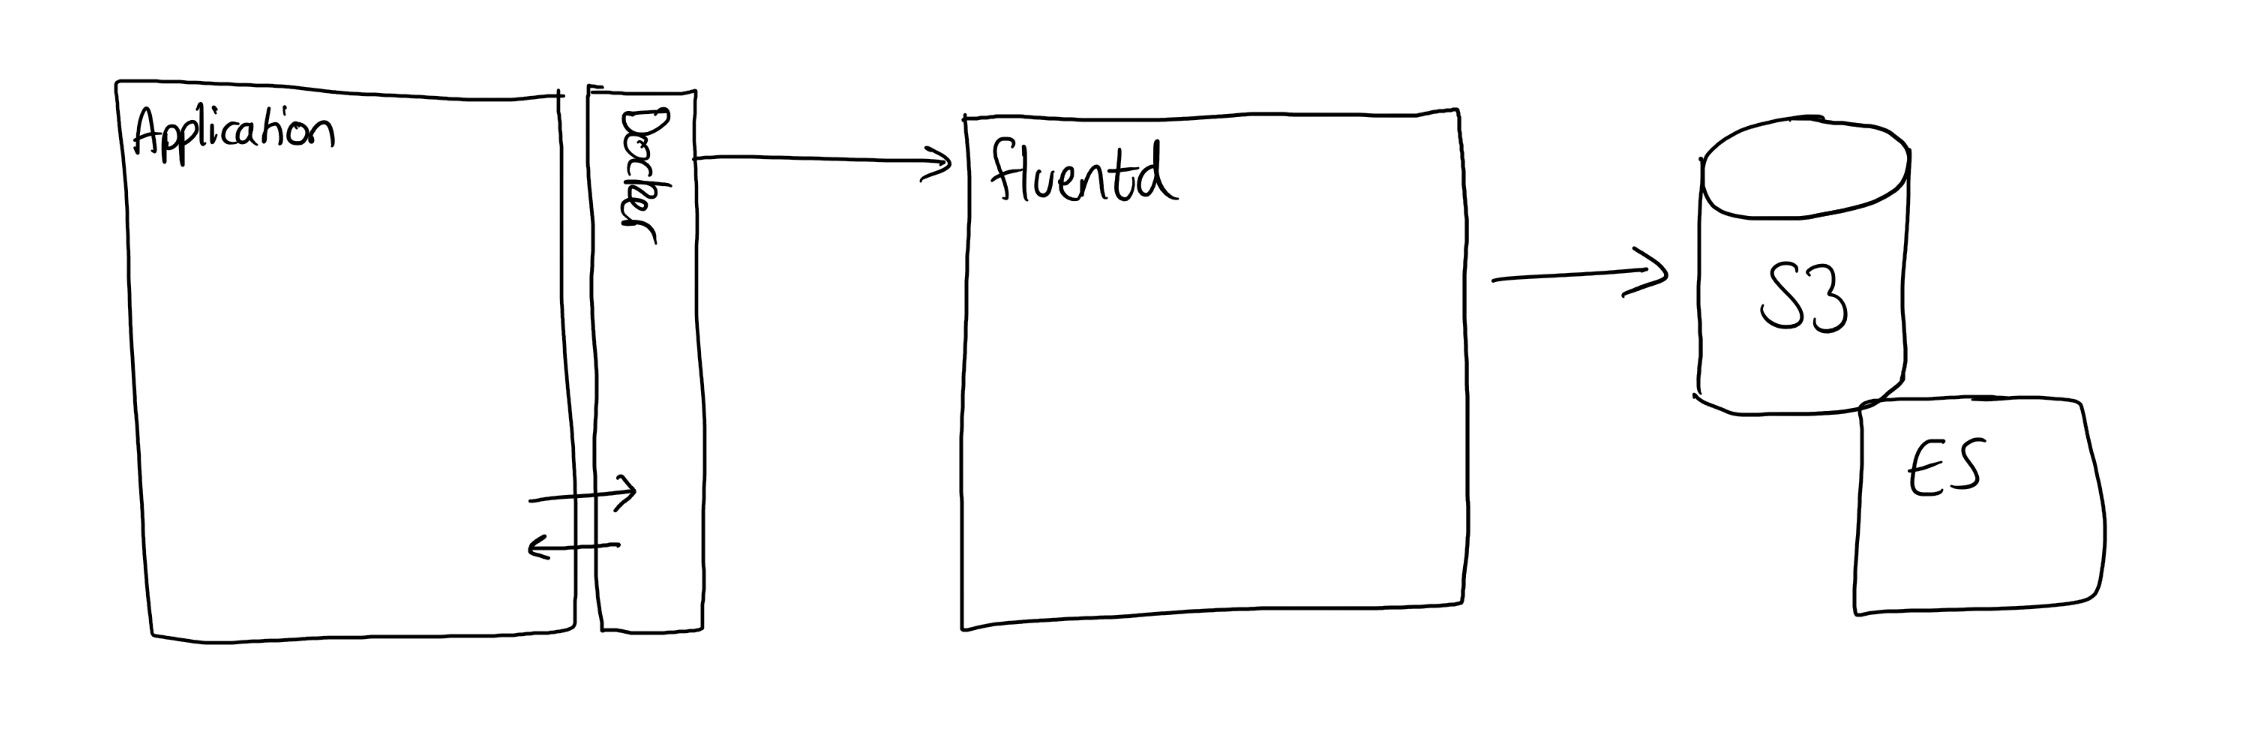 Application
Docker
fluentd
S3
ES